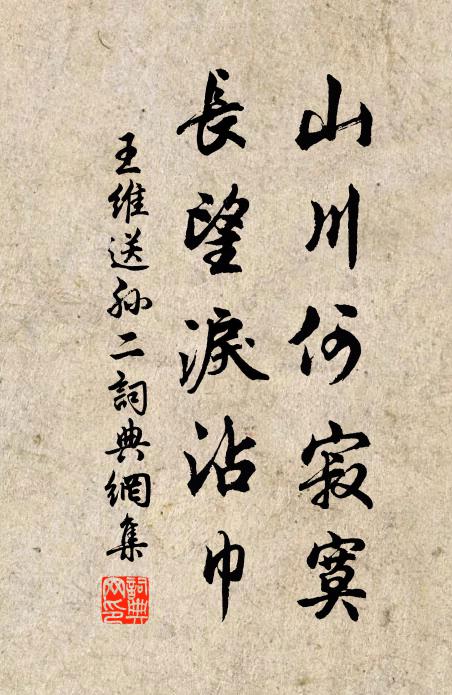 山川何寂寞
長望淚沾巾
王維送孙二詞典網集
詞典
网印